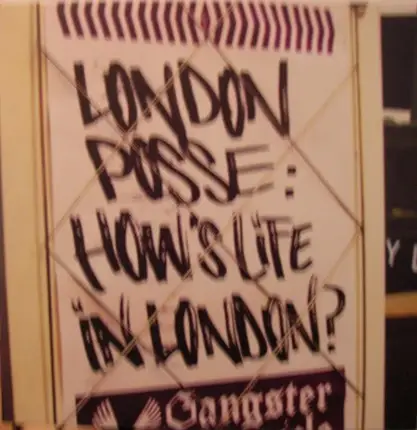 LONDON
POSSE:
HOW'S LIFE
IN LONDON?
Gangster